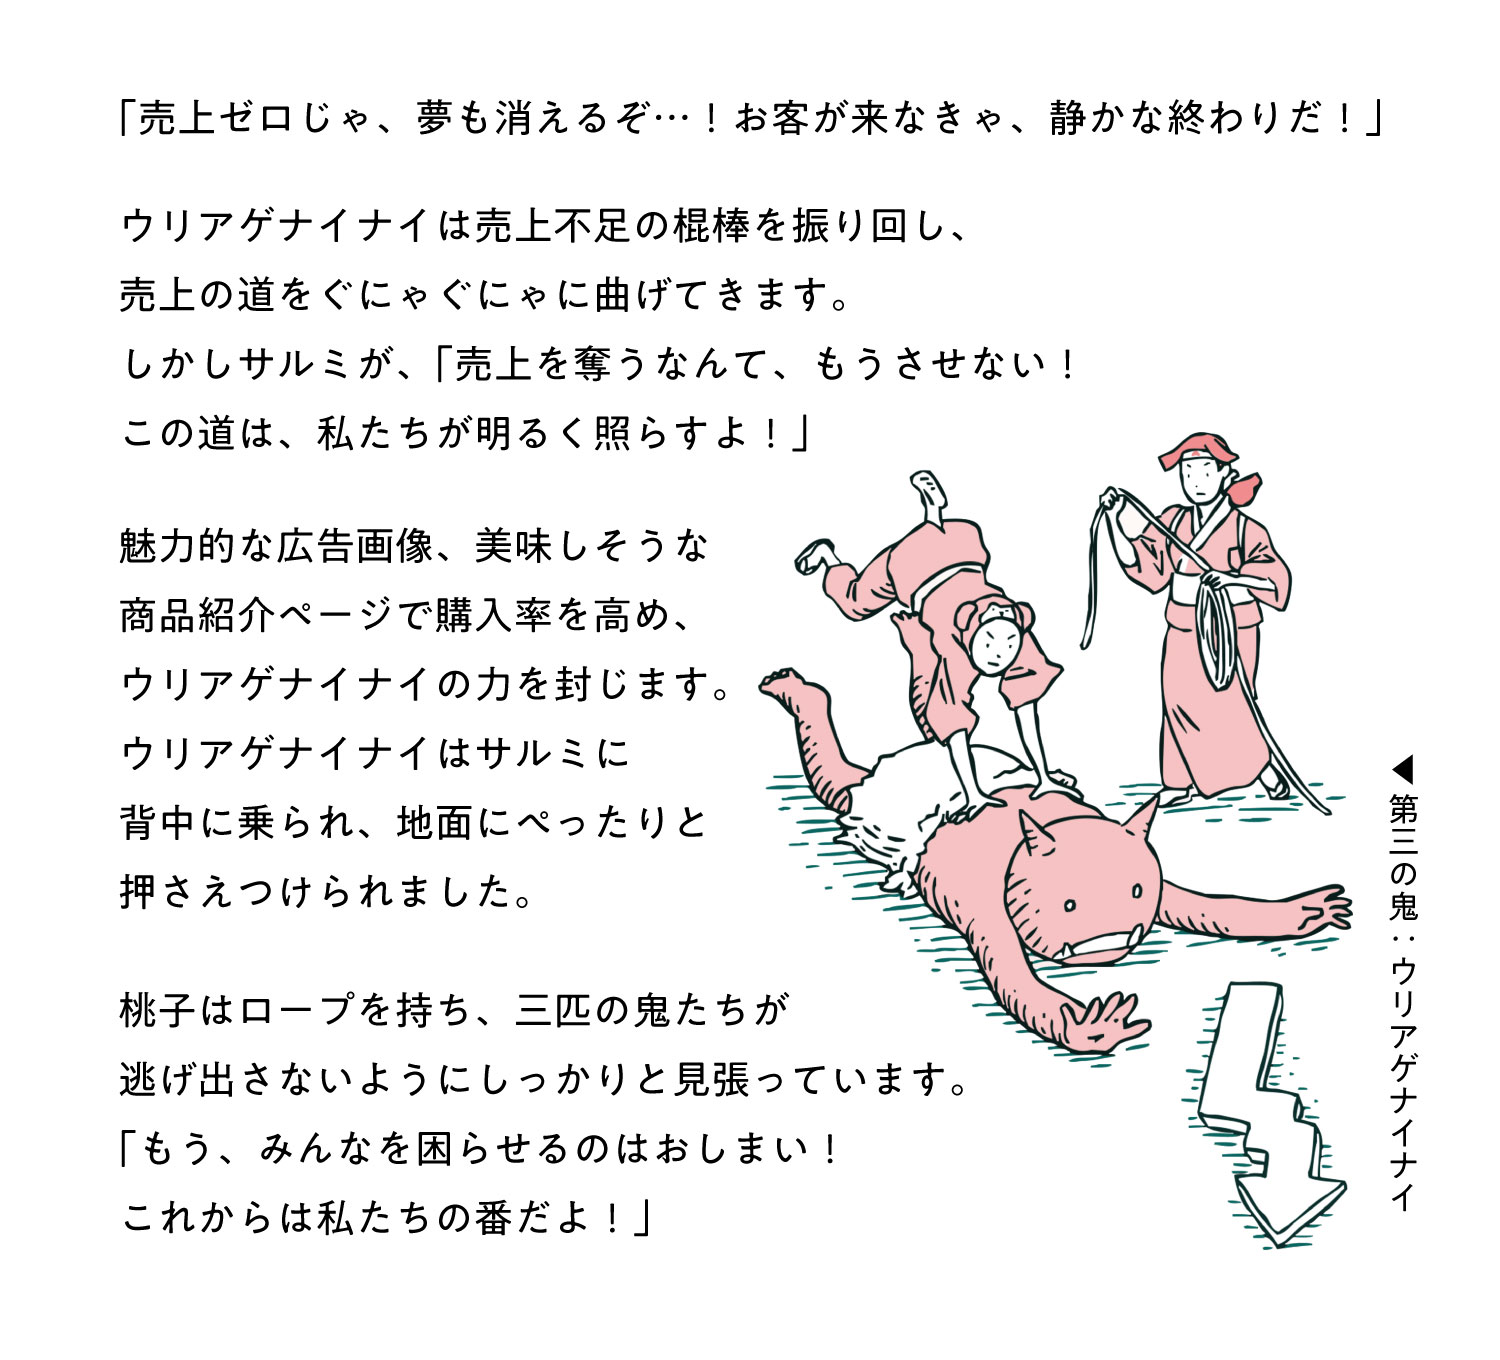 「売上ゼロじゃ、夢も消えるぞ…！お客が来なきゃ、静かな終わりだ！」
ウリアゲナイナイは売上不足の棍棒を振り回し、
売上の道をぐにゃぐにゃに曲げてきます。
しかしサルミが、「売上を奪うなんて、もうさせない！
この道は、私たちが明るく照らすよ！」
魅力的な広告画像、美味しそうな
商品紹介ページで購入率を高め、
ウリアゲナイナイの力を封じます。
ウリアゲナイナイはサルミに
背中に乗られ、地面にぺったりと
押さえつけられました。
桃子はロープを持ち、三匹の鬼たちが
逃げ出さないようにしっかりと見張っています。
「もう、みんなを困らせるのはおしまい！
これからは私たちの番だよ！」
◀第三の鬼：ウリアゲナイナイ